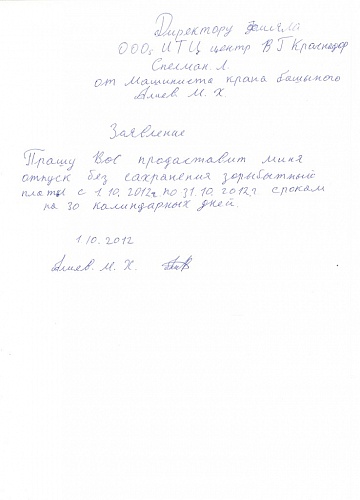 Директору
ООО, ИТЦ центр ВГ Краснодар
Спесман. Л.
от Машиниста крана башыного
Алиев М. Х.
Заявление
Прашу Вос продаставит миня
отпуск без сахранения зорыбытный
платы с 1.10.2012г по 31.10.2012г сроком
на 30 калиндарных дней.
1.10.2012
Алиев. М. Х.